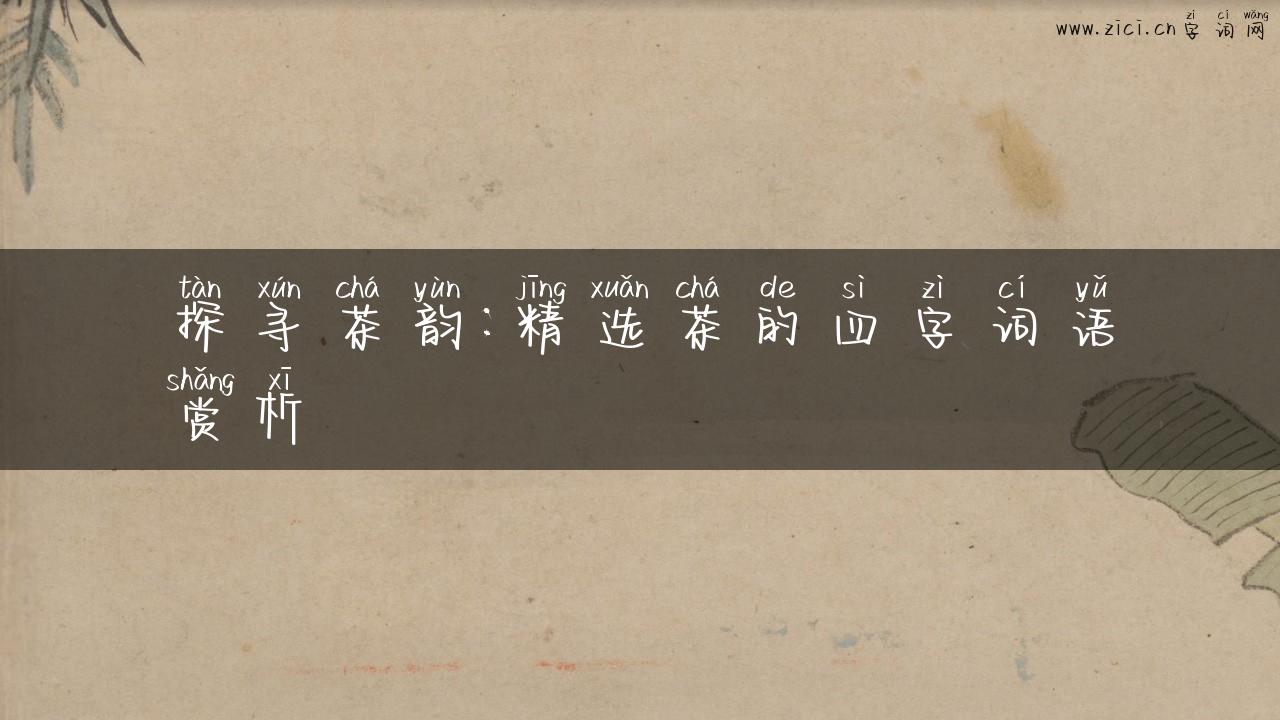 www.zici.cn zì cí wǎng
字词网
tàn xún chá yùn jīng xuǎn chá de sì zì cí yǔ
探寻茶韵:精选茶的四字词语
shǎng xī
赏析